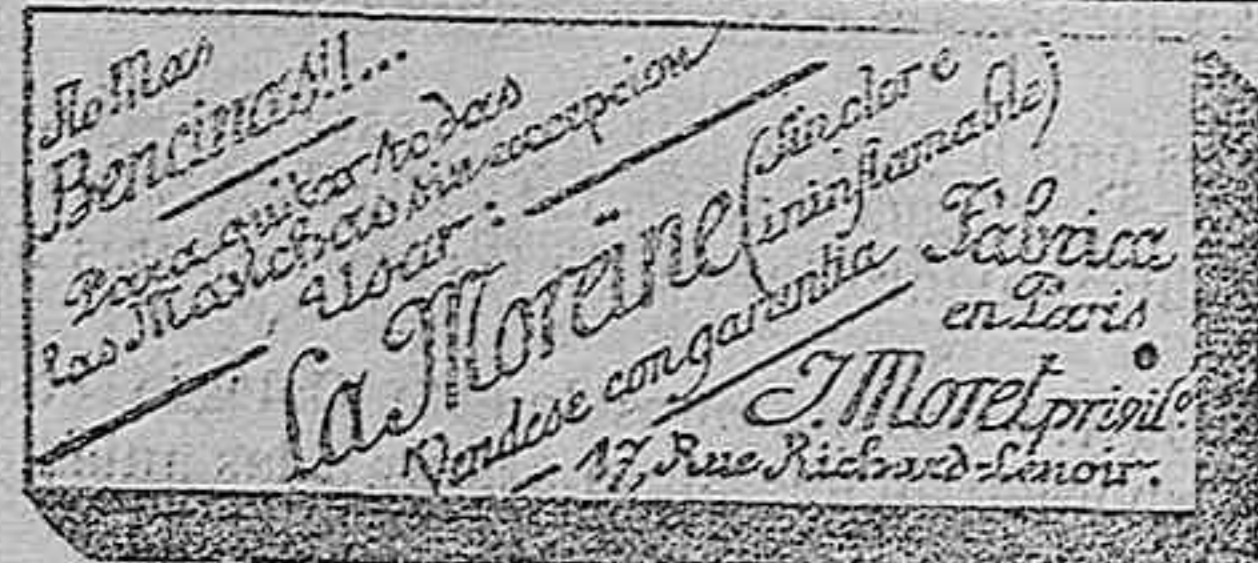 No Mas
Bencinas!!...
Para quitar todas
las Manchas sin eccepcion
Usar:
La Moreïne
(sin olor é
ininflamable)
Vendese con garantia
Fabrica
en Paris
J. Moret privilo.
17, Rue Richard-Lenoir.